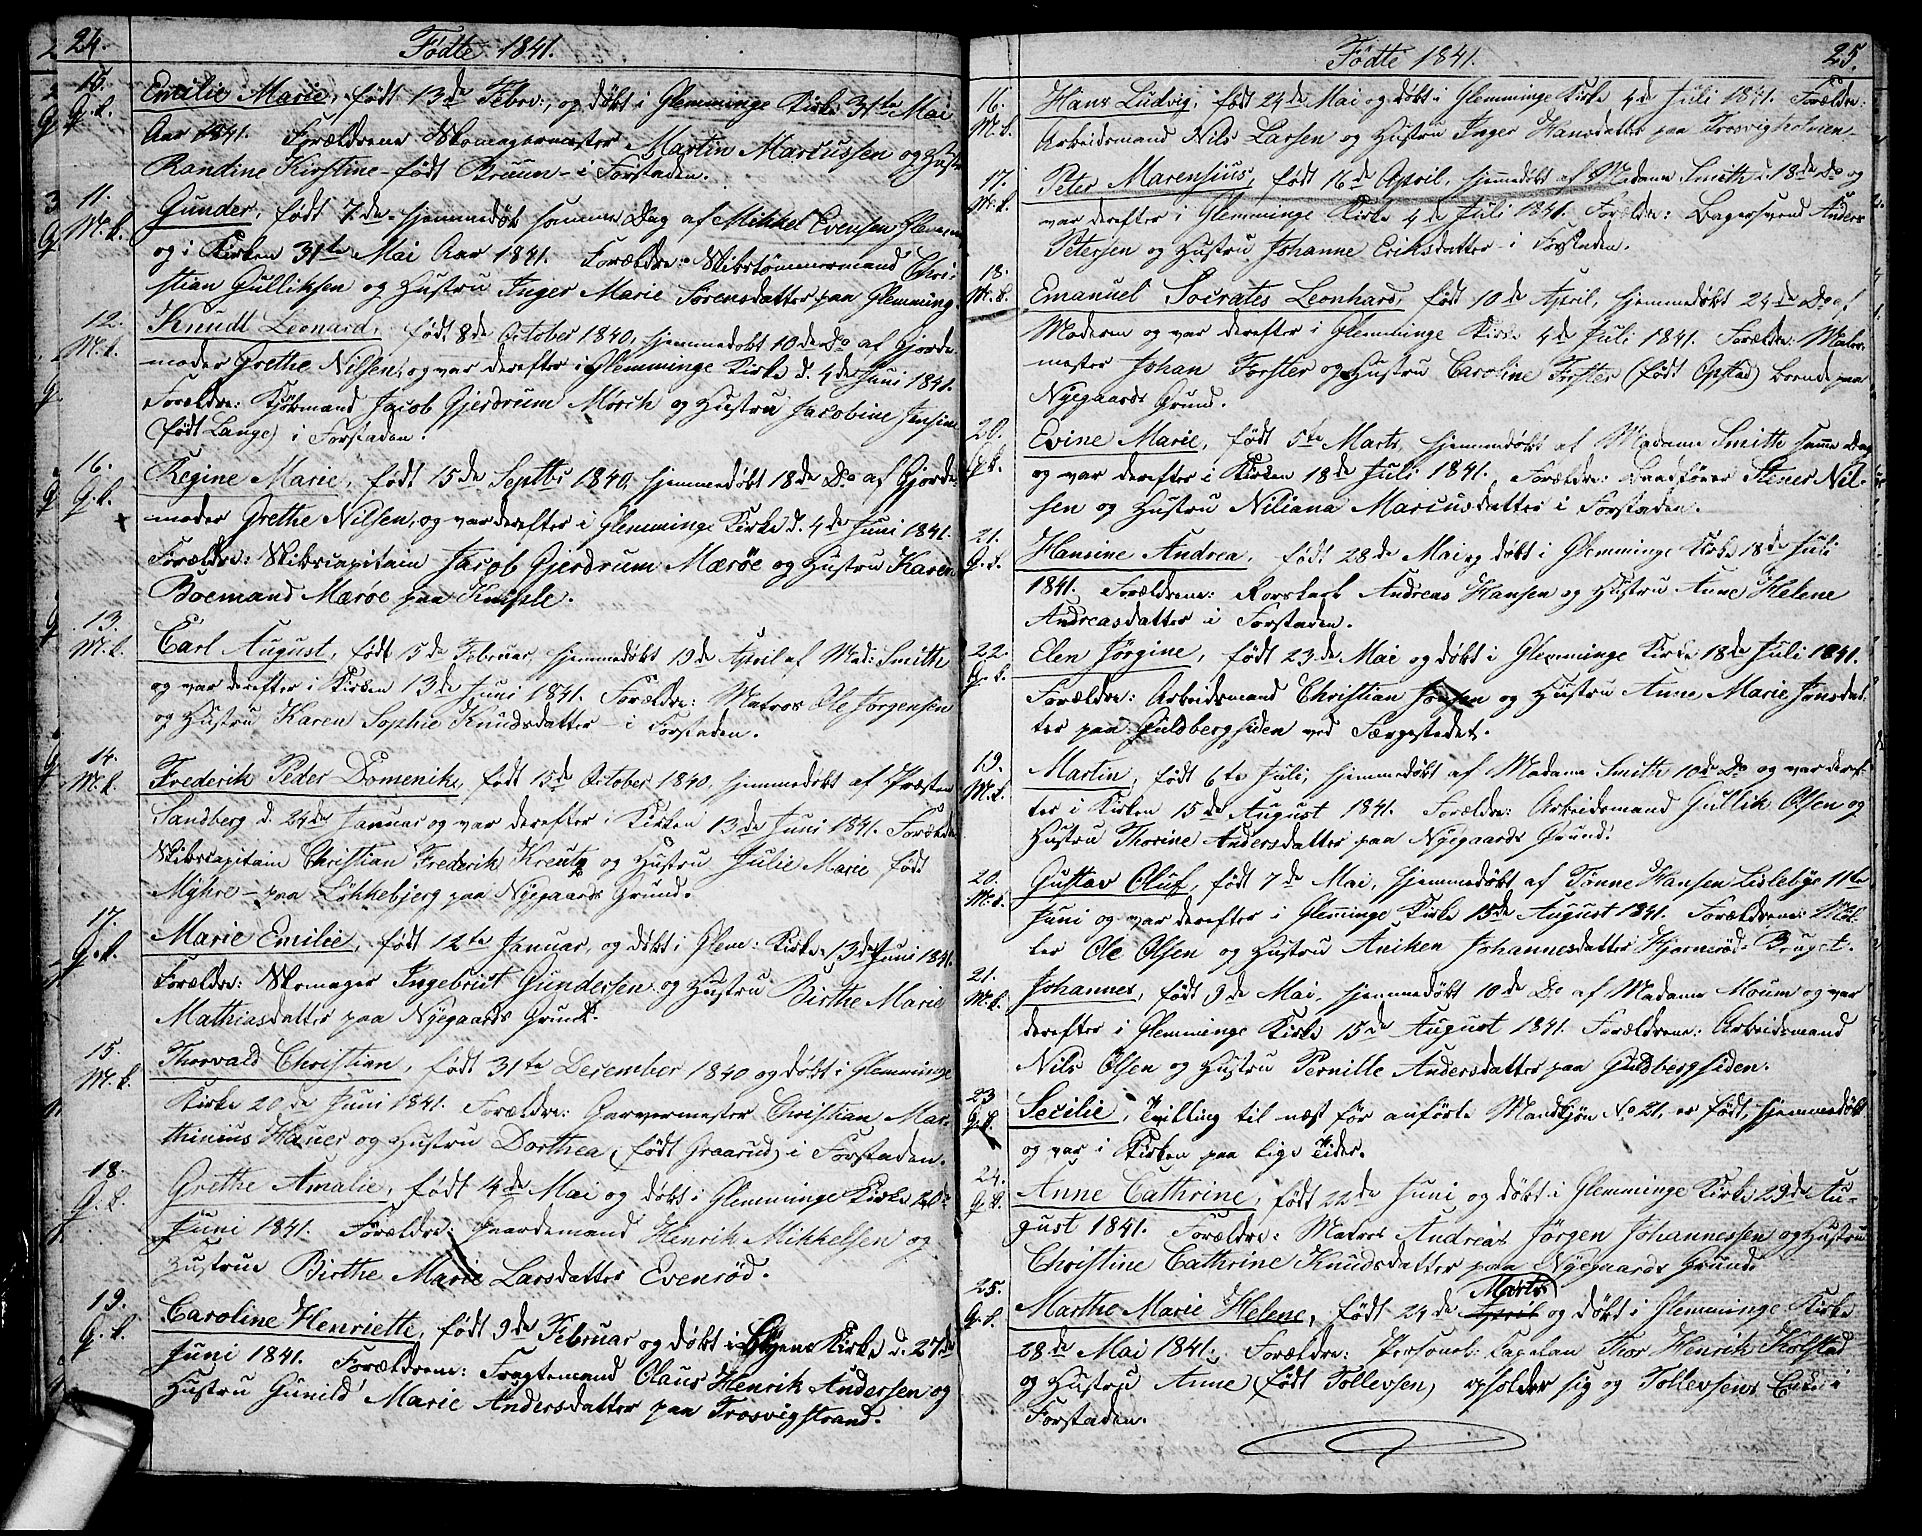 24.
Födte 1841.
15. Emilie Marie, født 13de Febr:, og døbt i Glemminge Kirke 31te Mai
G.k. Aar 1841. Forældrene Skomagermester Martin Marcussen og Hustru
Randine Kirstine - født Bruun - i Forstaden.
11. Gunder, født 7de hjemmedøbt samme Dag af Mikkel Evensen
M.k. og i Kirken 31te Mai Aar 1841. Forældre: Skibstømmermand Chri-
stian Gulliksen og Hustru Inger Marie Sørensdatter paa Glemming
12. Knudt Leonard, født 8de October 1840, hjemmedøbt 10de Do af Gjorde-
M.k. moder Grethe Nilsen, og var derefter i Glemminge Kirke d. 4de Juni 1841.
Forældre: Kjøbmand Jacob Gjerdrum Morch og Hustru Jacobine Jensine
(født Lange) i Forstaden.
16. Regine Marie, født 15de Septbr 1840, hjemmedøbt 18de Do af Gjorde-
G.k. moder Grethe Nilsen, og var derefter i Glemminge Kirke d. 4de Juni 1841.
Forældre: Skibscapitain Jacob Gjerdrum Mærøe og Hustru Karen
Boemand Mærøe paa Kniple.
13. Carl August, født 15de Februar, hjemmedøbt 19de April af Mad: Smith
M.k. og var derefter i Kirken 13de Juni 1841. Forældre: Matros Ole Jørgensen
og Hustru Karen Sophie Knudsdatter - i Forstaden.
14. Frederik Peder Domenik, født 15de October 1840, hjemmedøbt af Præsten
M.k. Sandberg d. 24de Januar og var derefter i Kirken 13de Juni 1841. Forældre
Skibscapitain Christian Frederik Kreutz og Hustru Julie Marie født
Myhre - paa Løkkebjerg paa Nygaards Grund.
17. Marie Emilie, født 12te Januar, og døbt i Glem: Kirke 13de Juni 1841.
G.k. Forældre: Skomager Ingebrit Gundersen og Hustru Birthe Marie
Mathiasdatter paa Nyegaards Grund.
15. Thorvald Christian, født 31te December 1840 og døbt i Glemminge
M.k. Kirke 20de Juni 1841. Forældre: Garvermester Christian Mar-
thinius Hauer og Hustru Dorthea (født Graarud) i Forstaden.
18. Grethe Amalie, født 4de Mai og døbt i Glemminge Kirke 20de
G.k. Juni 1841. Forældre: Gaardemand Henrik Mikkelsen og
Hustrue Birthe Marie Larsdatter Evenrød.
19. Caroline Henriette, født 9de Februar og døbt i Kirke d. 27de
G.k. Juni 1841. Forældrene: Fragtemand Olaus Henrik Andersen og
Hustru Gunild Marie Andersdatter paa Trosvigstrand.
Födte 1841. 25.
16. Hans Ludvig, født 24de Mai og døbt i Glemminge Kirke 4de Juli 1841. Forældre:
M.k. Arbeidsmand Nils Larsen og Hustru Inger Hansdatter paa Trosvigholmen.
17. Peter Marensius, født 16de April, hjemmedøbt af Madame Smith d. 18de Do og
M.k. var derefter i Glemminge Kirke 4de Juli 1841. Forældre: Bagersvend Anders
Petersen og Hustru Johanne Eriksdatter - i Forstaden.
18. Emanuel Socrates Leonhard, født 10de April, hjemmedøbt 24de Do af
M.k. Moderen og var derefter i Glemminge Kirke 4de Juli 1841. Forældre: Maler-
mester Johan Forster og Hustru Caroline Forster (født Opstad) boende paa
Nyegaards Grund.
20. Evine Marie, født 5te Marts, hjemmedøbt af Madame Smith samme Dag
G.k. og var derefter i Kirken 18de Juli 1841. Forældre: Stener Nil-
sen og Hustru Niliana Marcusdatter i Forstaden.
21. Hansine Andrea, født 28de Mai og døbt i Glemminge Kirke 18de Juli
G.k. 1841. Forældrene: Andreas Hansen og Hustru Anne Helene
Andreasdatter i Forstaden.
22. Elen Jørgine, født 23de Mai og døbt i Glemminge Kirke 18de Juli 1841.
G.k. Forældre: Arbeidsmand Christian Jonsen og Hustru Anne Marie Jonsdat-
ter paa Guldbergsiden ved Færgestedet.
19. Martin, født 6te Juli, hjemmedøbt af Madame Smith 10de Do og var deref-
M.k. ter i Kirken 15de August 1841. Forældre: Arbeidsmand Gullik Olsen og
Hustru Thorine Andersdatter paa Nyegaards Grund.
20. Gustav Oluf, født 7de Mai, hjemmedøbt af Tønne Hansen Lislebye 11te
M.k. Juni og var derefter i Glemminge Kirke 15de August 1841. Forældrene: Møl-
ler Ole Olsen og Hustru Aniken Johannesdatter Hjernerød Bruget.
21. Johannes, født 9de Mai, hjemmedøbt 10de Do af Madame Moum og var
M.k. derefter i Glemminge Kirke 15de August 1841. Forældrene: Arbeidsmand
Nils Olsen og Hustru Pernille Andersdatter paa Guldbergsiden.
23 Secilie, Tvilling til næst før anførte Mandkjøn No 21. er født, hjemmedøbt
G.k. og var i Kirken paa lige Tider.
24. Anne Cathrine, født 22de Juni og døbt i Glemminge Kirke 29de Au-
G.k. gust 1841. Forældre: Matros Andreas Jørgen Johannessen og Hustru
Christine Cathrine Knudsdatter paa Nyegaards Grund.
25. Marthe Marie Helene, født 24de April Marts og døbt i Glemminge Kirke
G.k. 28de Mai 1841. Forældre: Personel Capelan Thor Henrik Holstad
og Hustru Anne (født Tollevsen), opholder sig og Tollevsens i
Forstaden.